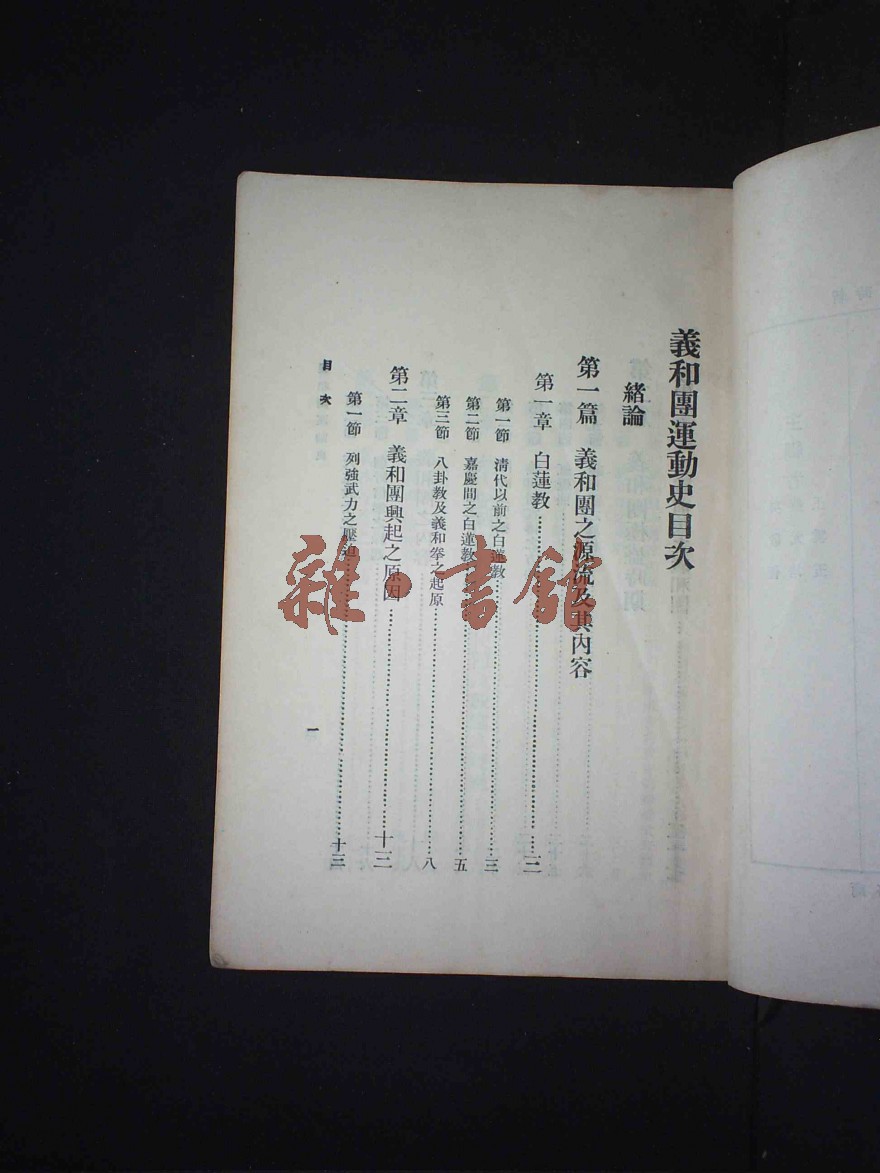 義和團運動史目次
緒論
第一篇 義和團之源流及其內容
第一章 白蓮教……三
第一節 清代以前之白蓮教……三
第二節 嘉慶間之白蓮教……五
第三節 八卦教及義和拳之起原……八
第二章 義和團興起之原因……十三
第一節 列強武力之壓迫……十三
目次
一
雜·書館